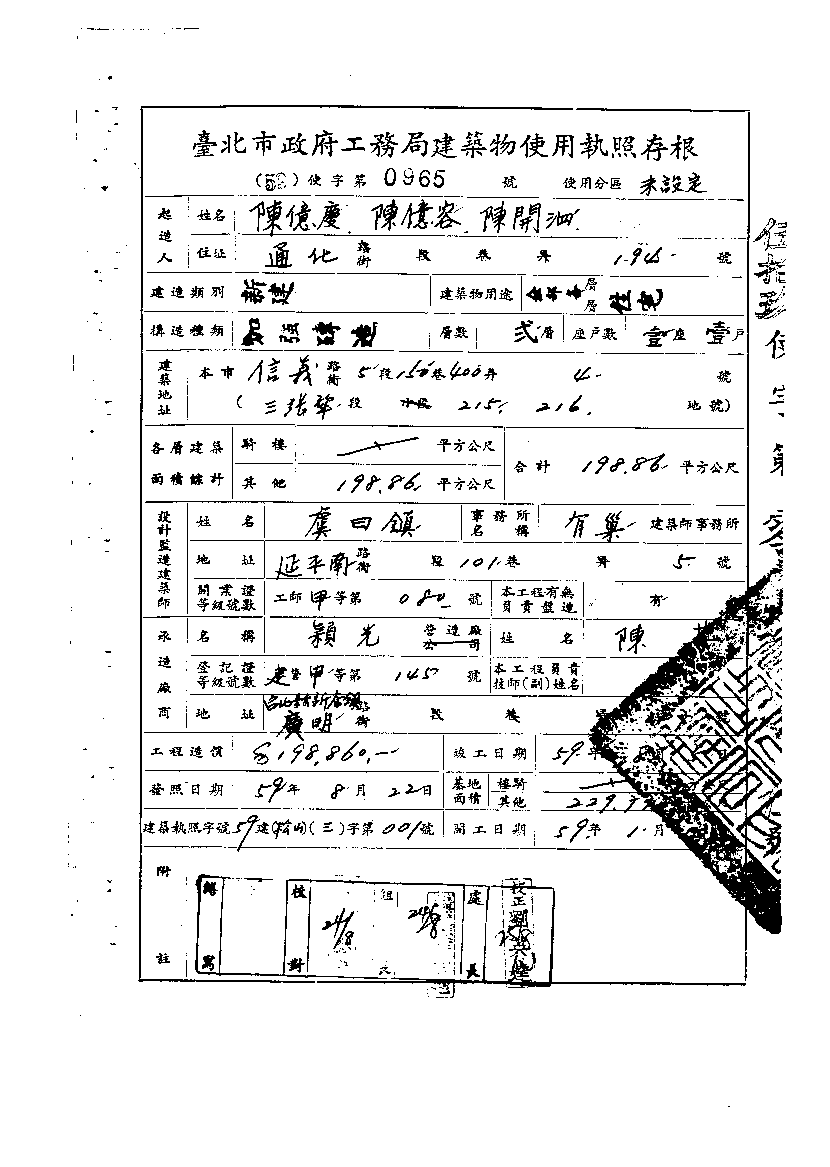 臺北市政府工務局建築物使用執照存根
(59)使字第0965號 使用分區 未設定
起造人 姓名 陳億慶 陳億容 陳開泗
住址 通化路街 段 巷 弄 194 號
建造類別 新建 建築物用途 層層 住宅
構造種類 加強磚造 層數 弍層 座戶數 壹座 壹戶
建築地址 本市 信義路街 5段150巷400弄 4 號
(三張犂段 小段 215. 216. 地號)
各層建築面積總計 騎樓 平方公尺
其他 198.86 平方公尺 合計 198.86 平方公尺
設計監造建築師 姓名 虞曰鎮 事務所名稱 有巢 建築師事務所
地址 延平南路街 段 101巷 弄 5 號
開業證等級號數 工師甲等第 080 號 本工程有無負責監造 有
承造廠商 名稱 穎光 營造廠公司 姓名 陳
登記證等級號數 建營甲等第 145 號 本工程負責技師(副)姓名
地址 廣明路街 段 巷 號
工程造價 198,860.— 竣工日期 59年 8
發照日期 59年 8月 22日 基地面積 騎樓 其他 229.
建築執照字號 59建(松山)(三)字第001號 開工日期 59年 1月
附註
繕寫 校對 24/8 組長 24/8 處長 校正
使字第